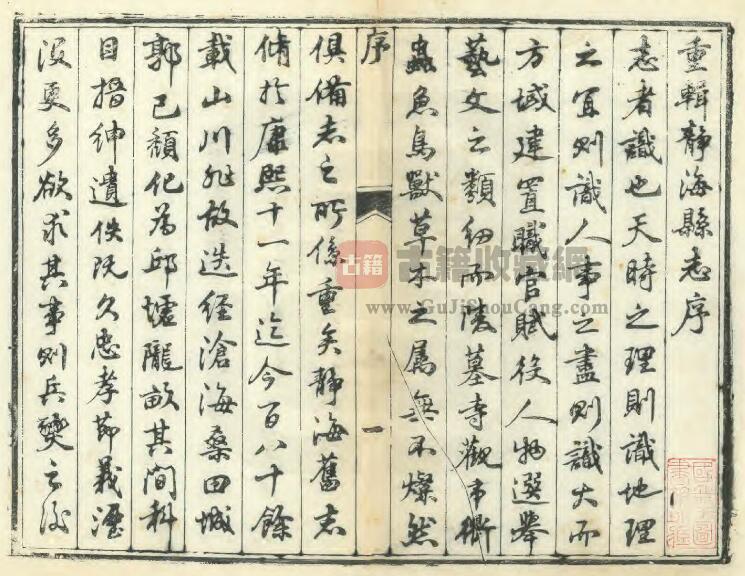 重輯靜海縣志序
志者識也天時之理則識地理
之宜則識人事之盡則識大而
方域建置職官賦役人物選舉
藝文之類細而陵墓寺觀市衢
蟲魚鳥獸草木之屬無不燦然
序
一
俱備志之所係重矣靜海舊志
脩於康熙十一年迄今百八十餘
載山川雖故迭經滄海桑田城
郭已頹化為邱墟隴畝其間科
目搢紳遺佚既久忠孝節義湮
沒更多欲求其事則兵燹之後
古籍收藏網
www.GuJiShouCang.com